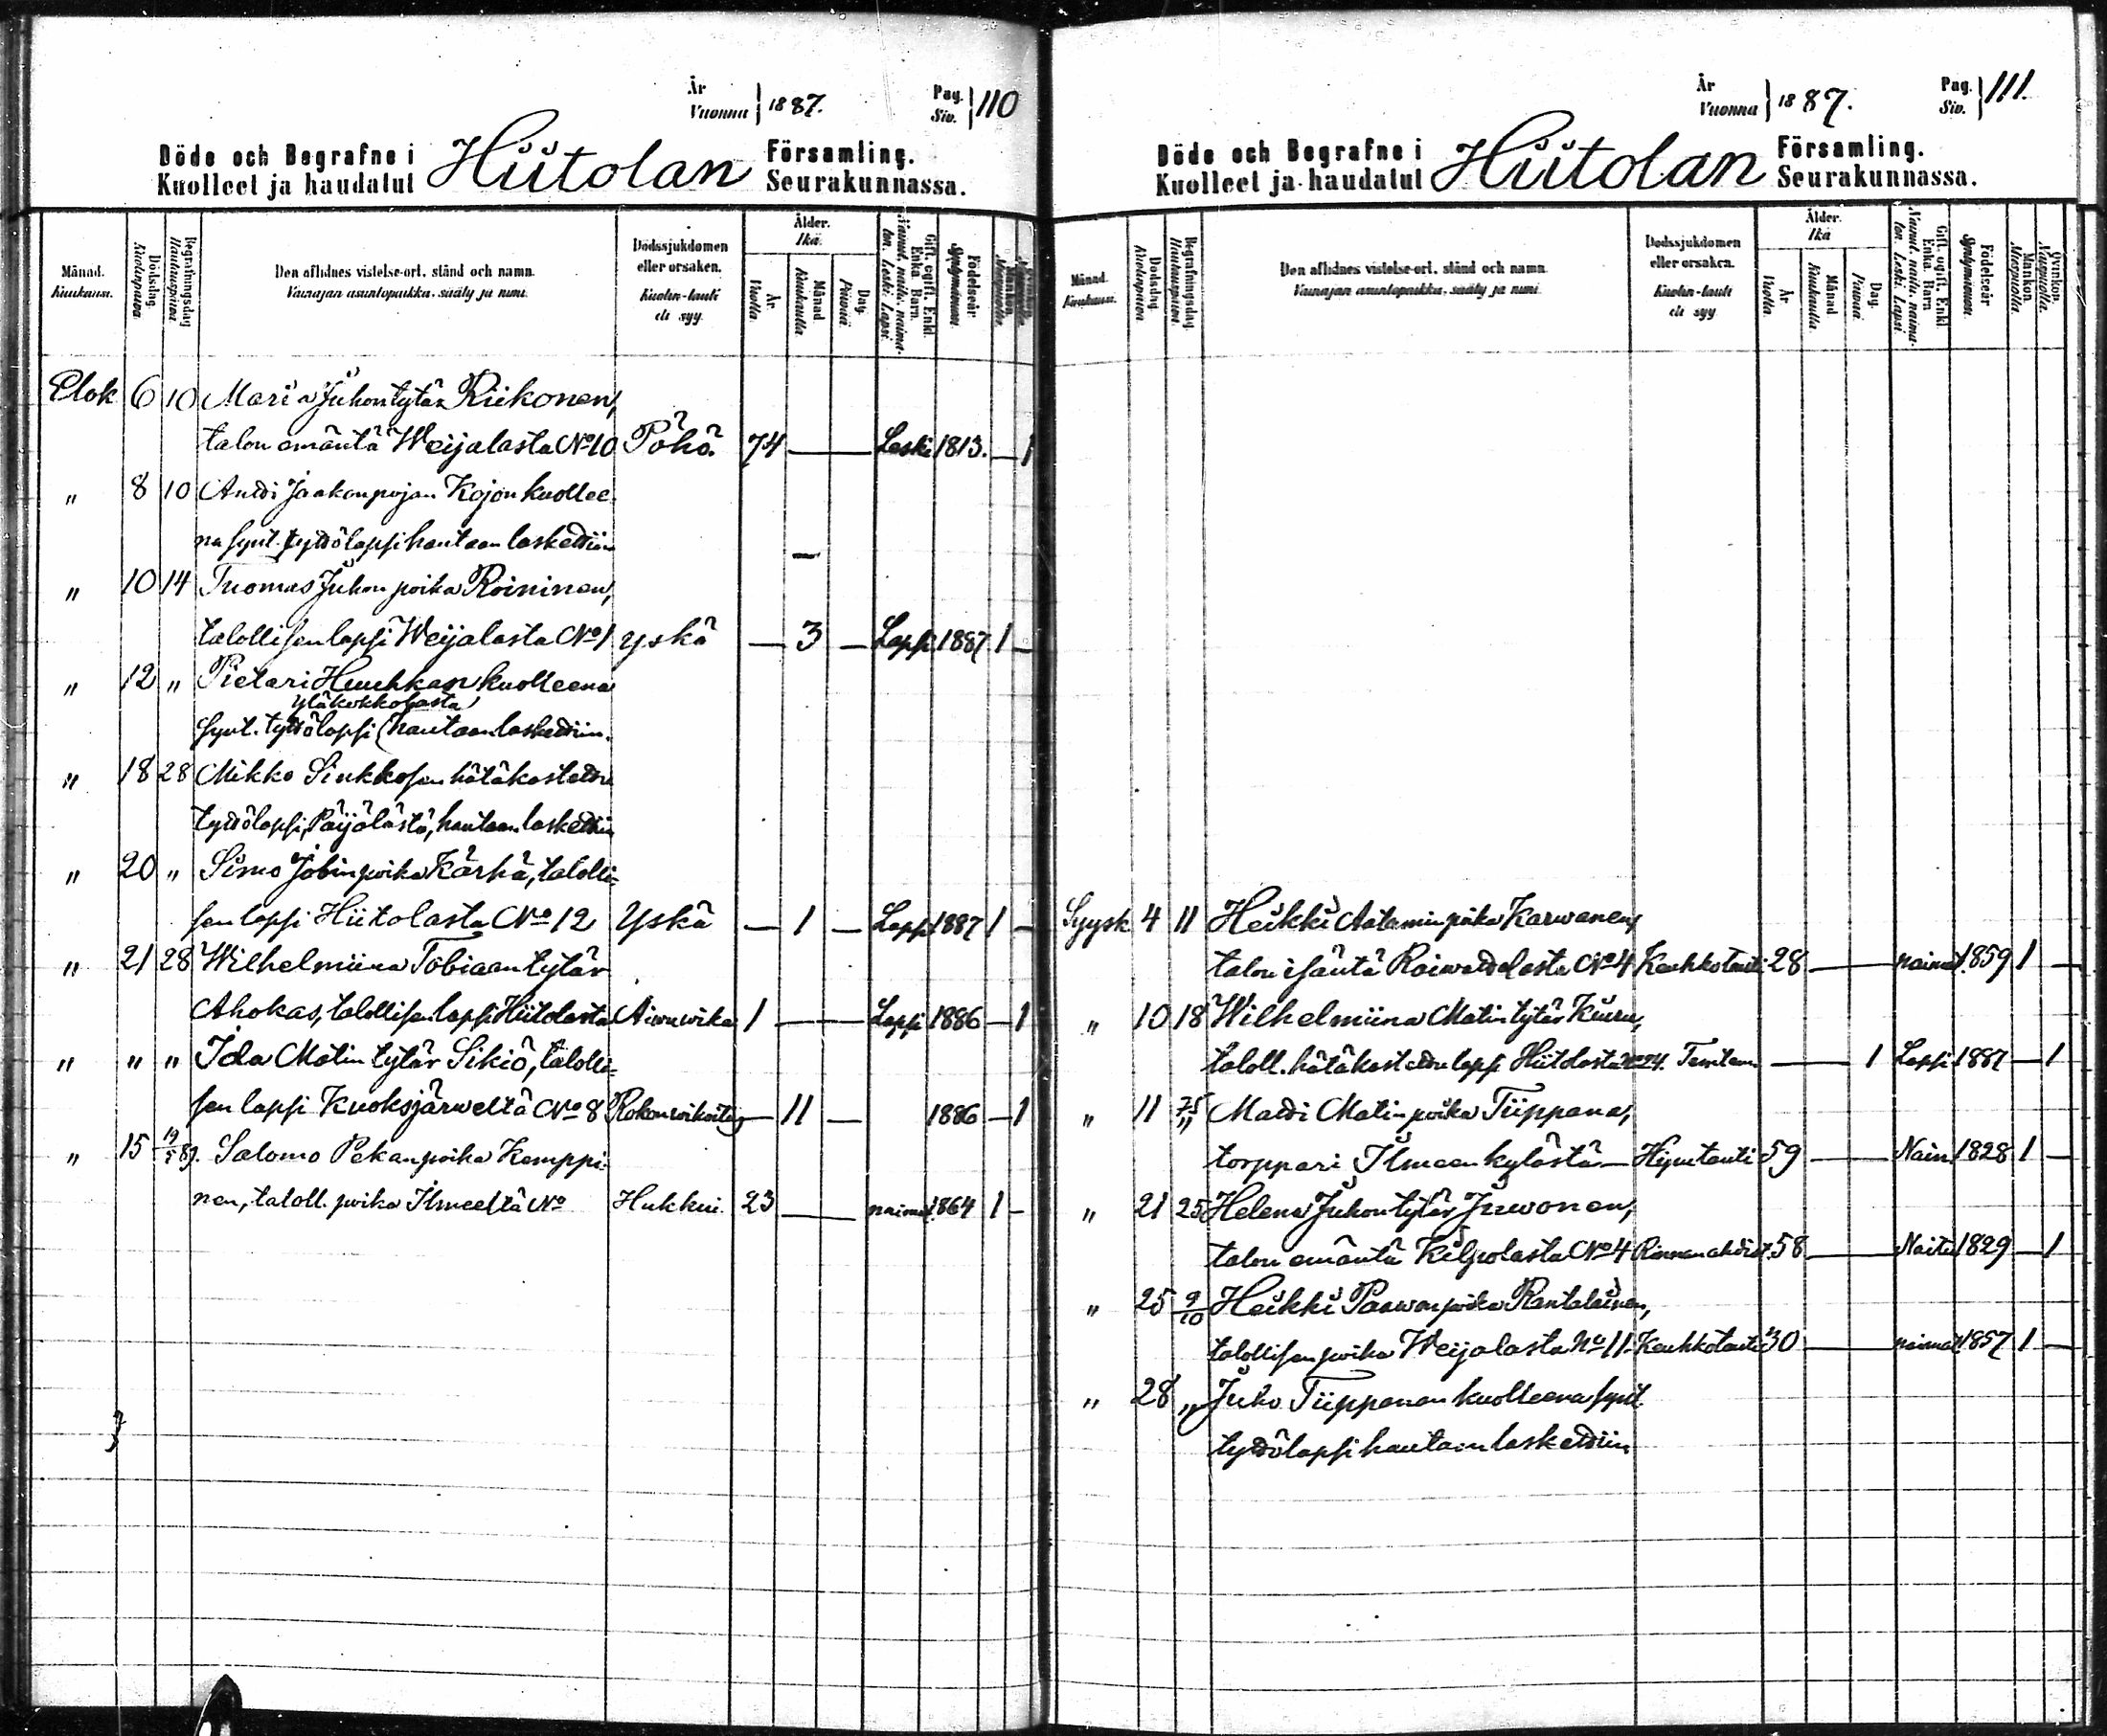 År
Vuonna } 1887.
Pag.
Siv. } 110
Döde och Begrafne i Hiitolan Församling.
Kuolleet ja haudatut Seurakunnassa.
Månad. Kuukausi.
Dödsdag. Kuolinpäiwä.
Begrafningsdag Hautauspäiwä
Den aflidnes vistelse-ort, stånd och namn.
Vainajan asuntopaikka, sääty ja nimi.
Dödssjukdomen eller orsaken.
Kuolin-tauti eli syy.
Ålder. Ikä.
År Vuotta.
Månad Kuukautta
Dag. Päiwää.
Gift, ogift, Enkl. Enka. Barn.
Nainut, naitu, naimaton. Leski. Lapsi.
Födelseår Syntymävuosi.
Mankön. Miespuolia.
Elok 6 10 Maria Juhontytär Riikonen,
talon emäntä Weijalasta No 10 Pöhö. 74 — Leski 1813. — 1
" 8 10 Antti Jaakonpojan Kojon kuollee-
na synt. tyttölapsi hautaan laskettiin —
" 10 14 Tuomas Juhon poika Roininen,
talollisen lapsi Weijalasta No 1 yskä — 3 — Lapsi 1887 1 —
" 12 " Pietari Huuhkan kuolleena
yläkokkolasta
synt. tyttölapsi hautaan laskettiin.
" 18 28 Mikko Sinkkosen hätäkastettu
tyttölapsi, Päijälästä, hautaan laskettiin
" 20 " Simo Jobinpoika Kärhä, talolli-
sen lapsi Hiitolasta No 12 Yskä — 1 — Lapsi 1887 1 —
" 21 28 Wilhelmiina Tobiaantytär
Ahokas, talollisen lapsi Hiitolasta Aiwuwika 1 — Lapsi 1886 — 1
" " " Ida Matintytär Sikiö, talolli-
sen lapsi Kuoksjärweltä No 8 — 11 — 1886 — 1
" 15 19/5 89. Salomo Pekanpoika Kemppi-
nen, taloll. poika Ilmeeltä No Hukkui. 23 — naimat. 1864 1 —
År
Vuonna } 1887.
Pag.
Siv. } 111.
Döde och Begrafne i Hiitolan Församling.
Kuolleet ja haudatut Seurakunnassa.
Månad. Kuukausi.
Dödsdag. Kuolinpäiwä
Begrafningsdag Hautauspäiwä.
Den aflidnes vistelse-ort, stånd och namn.
Vainajan asuntopaikka, sääty ja nimi.
Dödssjukdomen eller orsaken.
Kuolin-tauti eli syy
Ålder. Ikä
År Vuotta.
Månad Kuukautta.
Dag. Päiwää.
Gift, ogift, Enkl. Enka. Barn
Nainut, naitu, naimaton. Leski. Lapsi
Födelseår Syntymävuosi.
Mankön. Miespuolia.
Qvinkön. Vaimopuolia.
Syysk 4 11 Heikki Aataminpoika Karwanen,
talon isäntä Raiwattalasta No 4 Keuhkotauti 28 — naimat. 1859 1 —
" 10 18 Wilhelmiina Matintytär Kiuru,
taloll. hätäkastettu lapsi Hiitolasta No 24. — 1 Lapsi 1887 — 1
" 11 25/" Matti Matinpoika Tiippana,
torppari Ilmeen kylästä — 59 — Nain. 1828 1 —
" 21 25 Helena Juhontytär Juwonen,
talon emäntä Kilpolasta No 4 Rinnanahdist. 58 — Naitu 1829 — 1
" 25 9/10 Heikki Paawonpoika Rantalainen,
talollisen poika Weijalasta No 11. Keuhkotauti 30 — naimat. 1857 1 —
" 28 " Juho Tiippanan kuolleena synt.
tyttölapsi hautaan laskettiin